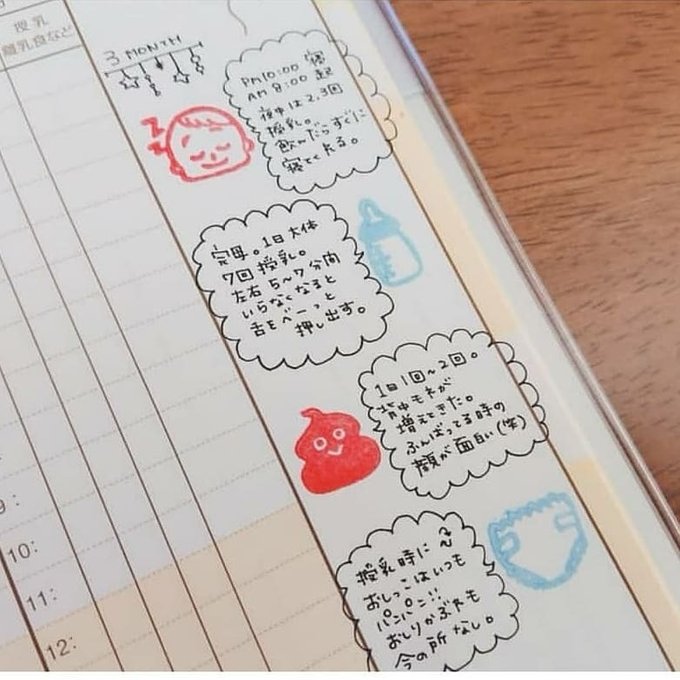 授乳
離乳食など
3 MONTH
PM10:00 寝
AM 8:00 起
夜中は2,3回
授乳。
飲んだらすぐに
寝てくれる。
完母。1日大体
7回授乳。
左右5〜7分間
いらなくなると
舌をべーっと
押し出す。
1日1回〜2回。
背中モレが
増えてきた。
ふんばってる時の
顔が面白い(笑)
授乳時に
おしっこはいつも
パンパン!!
おしりかぶれも
今の所なし。
9:
10:
11:
12: